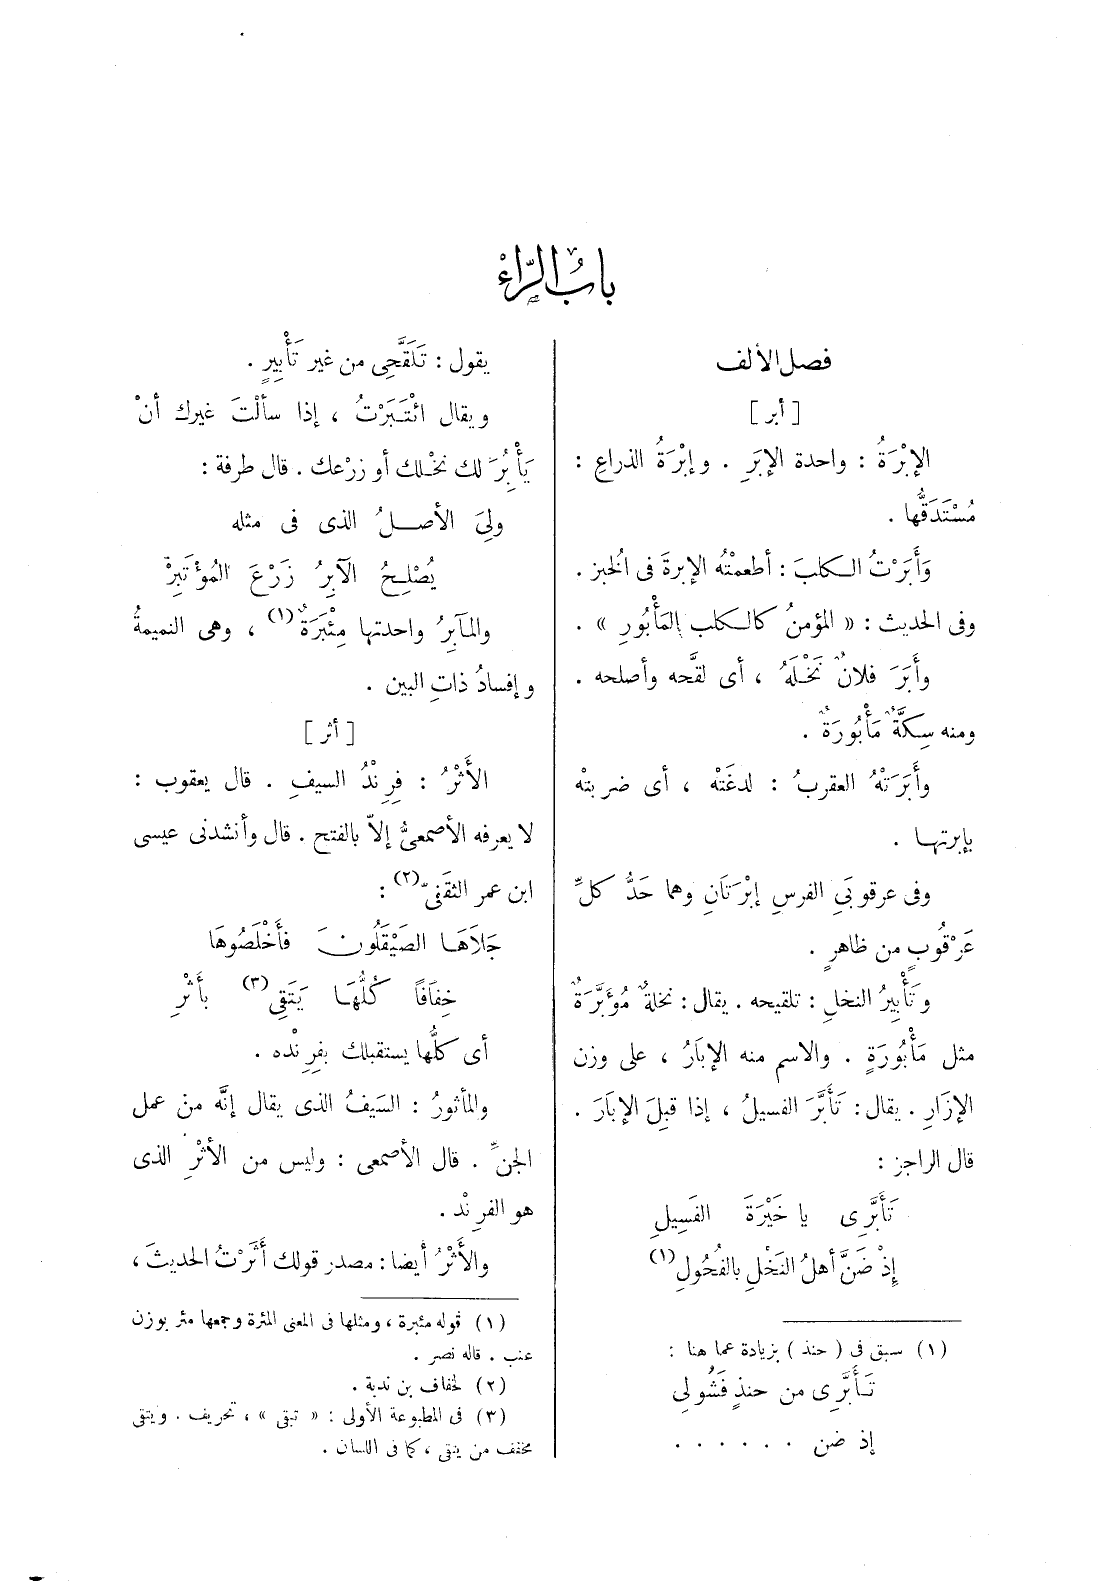 بابُ الرَّاءِ
فصل الألف
[ أبر ]
الإبْرَةُ : واحدة الإبَرِ . وإبْرَةُ الذراعِ :
مُسْتَدَقُّها .
وَأَبَرْتُ الكلبَ : أطعمْتُه الإبرةَ فى الخبز .
وفى الحديث : « المؤمنُ كالكلب المَأْبُورِ » .
وأَبَرَ فلانٌ نَخْلَهُ ، أى لقَّحه وأصلحه .
ومنه سِكَّةٌ مَأْبُورَةٌ .
وأَبَرَتْهُ العقربُ : لدغَتْه ، أى ضربتْه
بإبرتها .
وفى عرقوبَىِ الفرسِ إبْرَتَانِ وهما حَدُّ كلِّ
عَرْقُوبٍ من ظاهرٍ .
وتَأْبِيرُ النخلِ : تلقيحه . يقال : نخلةٌ مُؤَبَّرَةٌ
مثل مَأْبُورَةٍ . والاسم منه الإبَارُ ، على وزن
الإزَارِ . يقال : تَأَبَّرَ الفسيلُ ، إذا قبِلَ الإبَارَ .
قال الراجز :
تَأَبَّرِى يا خَيْرَةَ الفَسِيلِ
إذْ ضَنَّ أهلُ النَخْلِ بالفُحُولِ (١)
(١) سبق فى ( حنذ ) بزيادة عما هنا :
تَأَبَّرِى من حنذٍ فَشُولِى
إذ ضن . . . . . .
يقول : تَلَقَّحِى من غير تَأْبِيرٍ .
ويقال ائْتَبَرْتُ ، إذا سألْتَ غيرك أنْ
يَأْبُِرَ لك نخْلك أو زرْعك . قال طرفة :
ولِىَ الأصلُ الذى فى مثله
يُصْلِحُ الآبِرُ زَرْعَ المُؤْتَبِرْ
والمآبِرُ واحدتها مِئْبَرَةٌ (١) ، وهى النميمةُ
وإفسادُ ذاتِ البين .
[ أثر ]
الأَثْرُ : فِرِنْدُ السيفِ . قال يعقوب :
لا يعرفه الأصمعىُّ إلاّ بالفتح . قال وأنشدنى عيسى
ابن عمر الثقفىّ (٢) :
جَلَاهَا الصَيْقَلُونَ فأَخْلَصُوهَا
خِفَافًا كُلُّهَا يَتَقِى (٣) بأَثْرِ
أى كلُّها يستقبلك بفِرِنْده .
والمأثورُ : السَيفُ الذى يقال إنَّه من عمل
الجنِّ . قال الأصمعى : وليس من الأثْرِ الذى
هو الفرِنْد .
والأَثْرُ أيضا : مصدر قولك أَثَرْتُ الحديثَ ،
(١) قوله مئبرة ، ومثلها فى المعنى المئرة وجمعها مئر بوزن
عنب . قاله نصر .
(٢) لخفاف بن ندبة .
(٣) فى المطبوعة الأولى : « تبقى » ، تحريف . ويتقى
مخفف من يتقى ، كما فى اللسان .